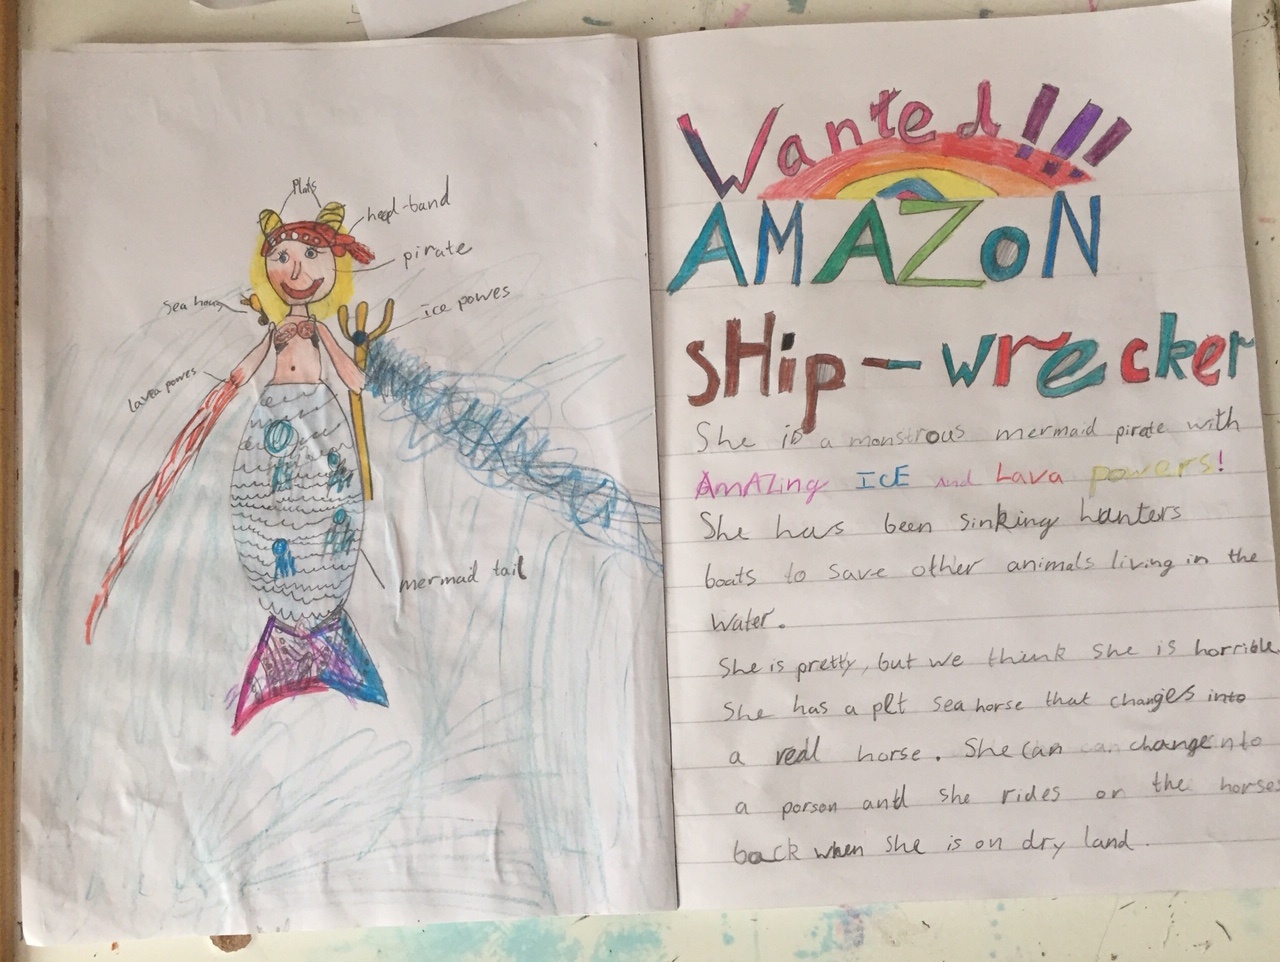 Plats
head-band
pirate
Sea hors
ice powes
lavea powes
mermaid tail
Wanted!!!
AMAZoN
sHip-wrecker
She is a monstrous mermaid pirate with
AmAZing ICE and Lava powers!
She has been sinking hanters
boats to save other animals living in the
water.
She is pretty, but we think she is horrible.
She has a pet sea horse that changes into
a real horse. She can can change nto
a porson and she rides on the horses
back when she is on dry land.